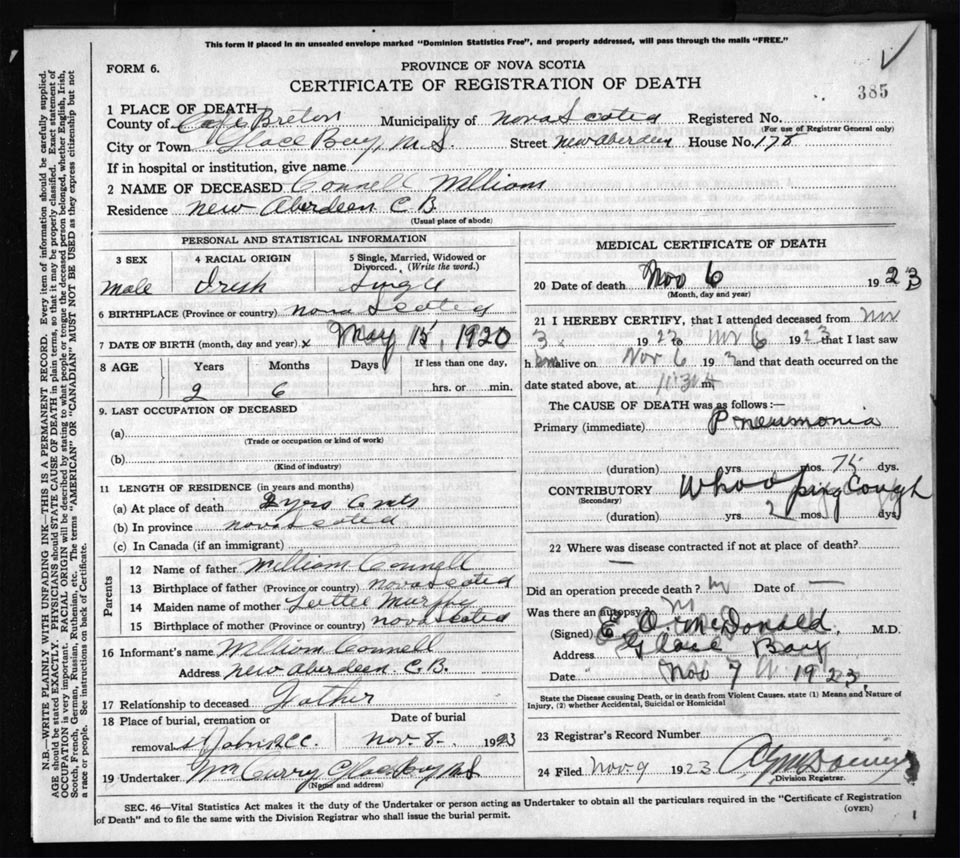 This form if placed in an unsealed envelope marked "Dominion Statistics Free", and properly addressed, will pass through the mails "FREE."
FORM 6.
PROVINCE OF NOVA SCOTIA
CERTIFICATE OF REGISTRATION OF DEATH
385
1 PLACE OF DEATH
County of Cape Breton Municipality of Nova Scotia Registered No.
(For use of Registrar General only)
City or Town Glace Bay, N.S. Street New Aberdeen House No. 178
If in hospital or institution, give name
2 NAME OF DECEASED Connell William
Residence New Aberdeen C.B.
(Usual place of abode)
PERSONAL AND STATISTICAL INFORMATION
3 SEX 4 RACIAL ORIGIN 5 Single, Married, Widowed or Divorced. (Write the word.)
Male Irish Single
6 BIRTHPLACE (Province or country) Nova Scotia
7 DATE OF BIRTH (month, day and year) x May 15, 1920
8 AGE Years Months Days If less than one day,
2 6 hrs. or min.
9. LAST OCCUPATION OF DECEASED
(a)
(Trade or occupation or kind of work)
(b)
(Kind of industry)
11 LENGTH OF RESIDENCE (in years and months)
(a) At place of death 2 yrs 6 mts
(b) In province Nova Scotia
(c) In Canada (if an immigrant)
Parents
12 Name of father William Connell
13 Birthplace of father (Province or country) Nova Scotia
14 Maiden name of mother Lottie Murphy
15 Birthplace of mother (Province or country) Nova Scotia
16 Informant's name William Connell
Address New Aberdeen C.B.
17 Relationship to deceased Father
18 Place of burial, cremation or Date of burial
removal St Johns Nov. 8 1923
19 Undertaker McCurry Glace Bay N.S
(Name and address)
MEDICAL CERTIFICATE OF DEATH
20 Date of death Nov 6 1923
(Month, day and year)
21 I HEREBY CERTIFY, that I attended deceased from Nov
3 to Nov 6 1923 that I last saw
him alive on Nov 6 and that death occurred on the
date stated above, at 11:30 m,
The CAUSE OF DEATH was as follows:—
Primary (immediate) Pneumonia
(duration) yrs. mos. dys.
CONTRIBUTORY Whooping Cough
(Secondary)
(duration) yrs. 2 mos. dys.
22 Where was disease contracted if not at place of death?
—
Did an operation precede death? Date of —
Was there an autopsy?
(Signed) McDonald, M.D.
Address Glace Bay
Date Nov 7 1923.
State the Disease causing Death, or in death from Violent Causes. state (1) Means and Nature of
Injury, (2) whether Accidental, Suicidal or Homicidal
23 Registrar's Record Number
24 Filed Nov 9 1923
Division Registrar.
SEC. 46—Vital Statistics Act makes it the duty of the Undertaker or person acting as Undertaker to obtain all the particulars required in the "Certificate of Registration
of Death" and to file the same with the Division Registrar who shall issue the burial permit.
(OVER)
N.B.—WRITE PLAINLY WITH UNFADING INK—THIS IS A PERMANENT RECORD. Every item of information should be carefully supplied.
AGE should be stated EXACTLY. PHYSICIANS should STATE CAUSE OF DEATH in plain terms, so that it may be properly classified. Exact statement of
OCCUPATION is very important. RACIAL ORIGIN will be described by stating to what people or tongue the deceased person belonged, whether English, Irish,
Scotch, French, German, Russian, Ruthenian, etc. The terms "AMERICAN" OR "CANADIAN" MUST NOT BE USED as they express citizenship but not
a race or people. See instructions on back of Certificate.